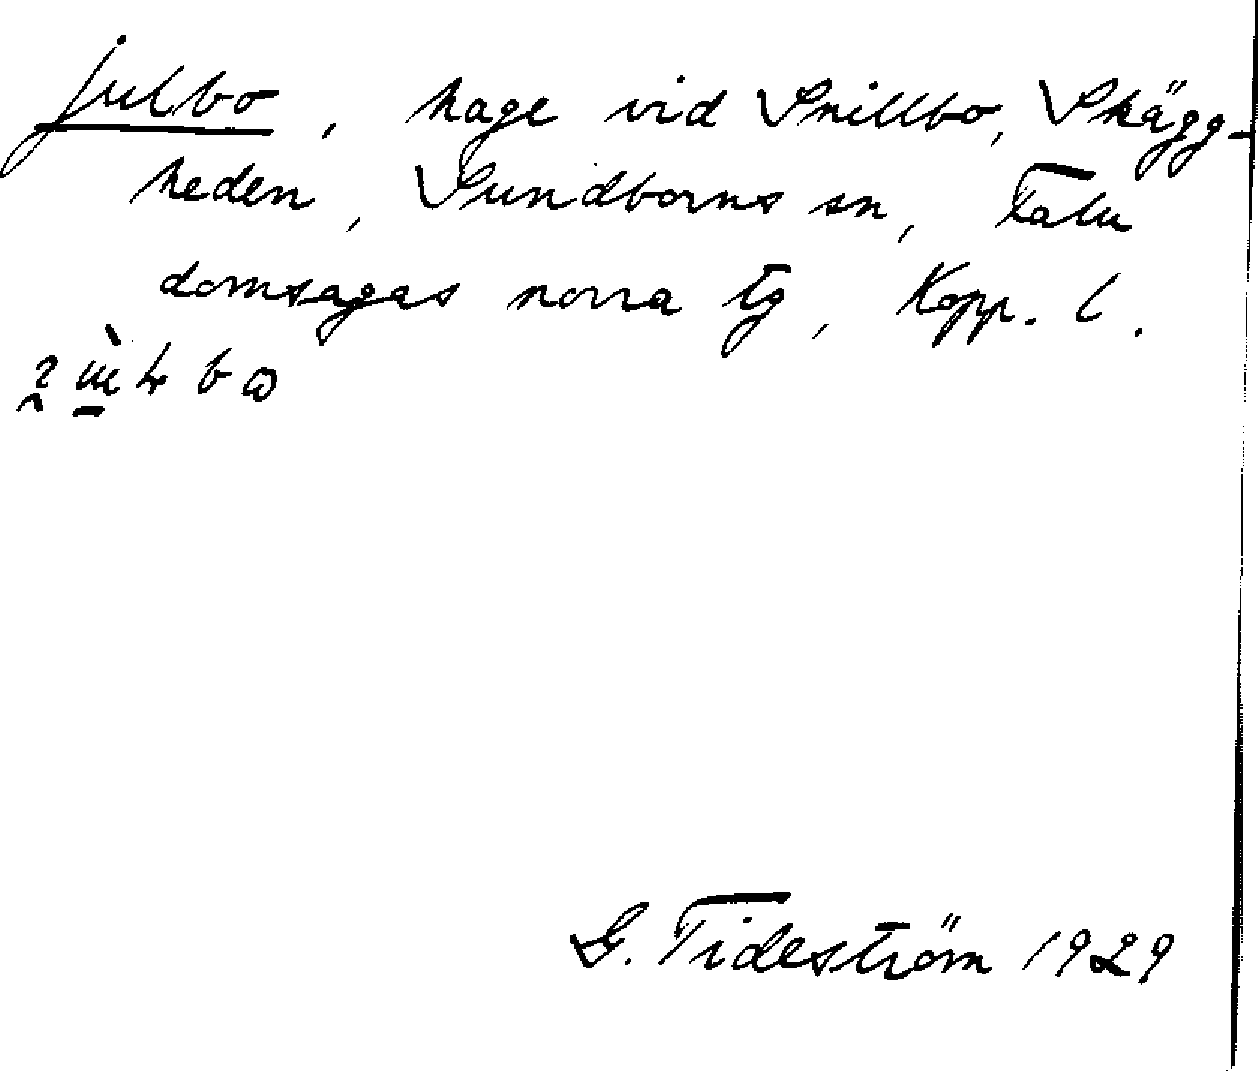 Julbo, hage vid Snillbo, Skägg-
heden, Sundborns sn, Falu
domsagas norra tg, Kopp. l.
G. Tideström 1929